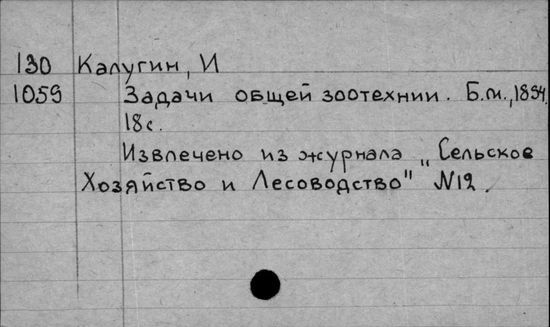 130 Калугин, И
1059 Задачи общей зоотехнии. Б.м., 1894,
18 с.
Извлечено из журнала „Сельское
Хозяйство и Лесоводство" N12.